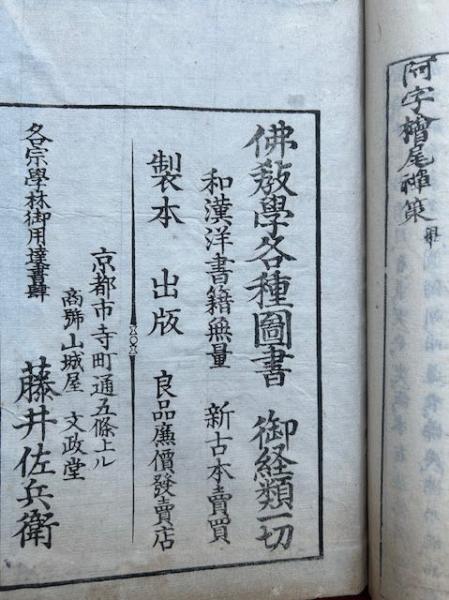 阿字檜尾禅策
佛敎學各種圖書 御経類一切
和漢洋書籍無量 新古本賣買
製本 出版 良品廉價發賣店
京都市寺町通五條上ル
商號 山城屋 文政堂
各宗學林御用達書肆 藤井佐兵衛